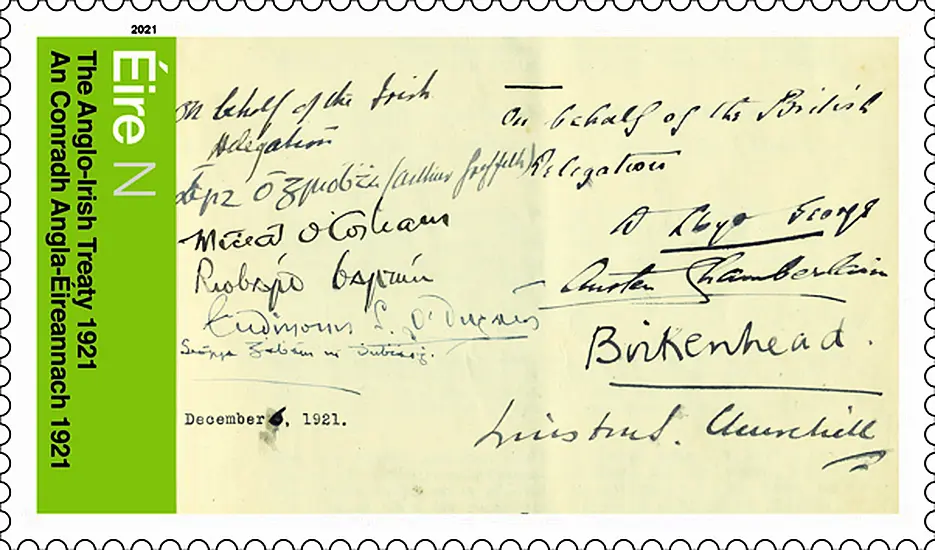 2021
Éire N
The Anglo-Irish Treaty 1921
An Conradh Angla-Éireannach 1921
On behalf of the Irish
Delegation
Art Ó Gríobhtha (Arthur Griffith)
Micheál Ó Coileain
Riobárd Bartún
Eudhmonn S. Ó Dugáin
Seórsa Ghabháin Uí Dhubhthaigh
December 6, 1921.
On behalf of the British
Delegation
D Lloyd George
Austen Chamberlain
Birkenhead.
Winston S. Churchill